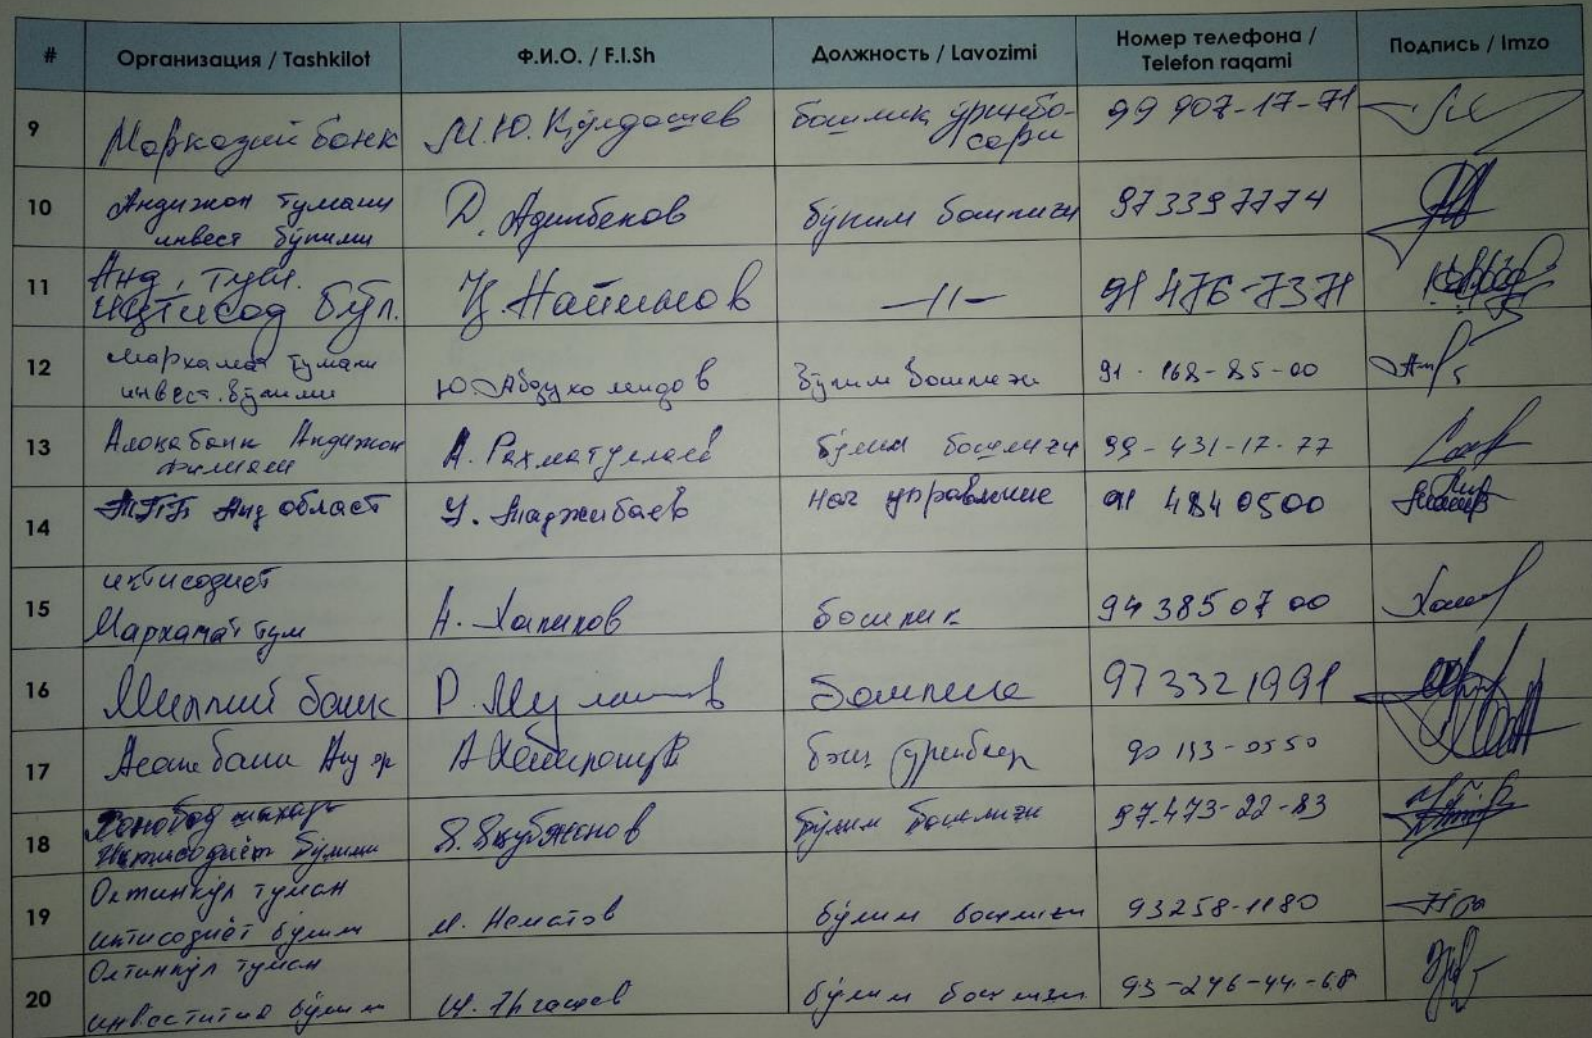 # Организация / Tashkilot Ф.И.О. / F.I.Sh Должность / Lavozimi Номер телефона / Telefon raqami Подпись / Imzo
9 Марказий банк М.Ю. Қўлдошев бошлиқ ўринбо-
сари 99 907-17-71
10 Андижон тумани
инвест бўлими Д. Адинбеков бўлим бошлиғи 973397774
11 Анд. тум.
Иқтисод бўл. Найимов —//— 91 476-7371
12 Мархамат тумани
инвест. бўлими Ю. бўлим бошлиғи 91 - 168-85-00
13 Алоқабанк Андижон
филиали А. Рахматуллаев бўлим бошлиғи 99-431-17-77
14 ТПП Анд област У. Маджибаев Нач управление 91 4840500
15 иқтисодиёт
Мархамат тум А. Халилов бошлиқ 94 3850700
16 Миллий банк Р. бошлиғи 97 332 1991
17 Анд бош
18 Хонобод шахар
Иқтисодиёт бўлими Я. Якубжонов бўлим бошлиғи 97-473-22-83
19 Олтинкўл туман
иқтисодиёт бўлим М. Нематов бўлим бошлиғи 93258-1180
20 Олтинкўл туман
бўлим Эргашев бўлим бошлиғи 93-246-44-68